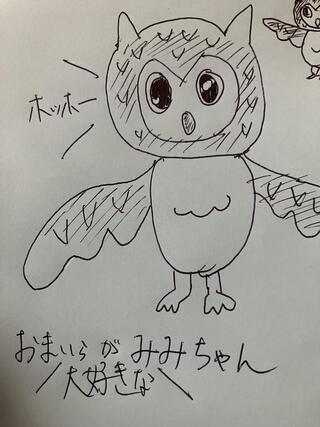 ホッホー
おまいらが みみちゃん
大好きな